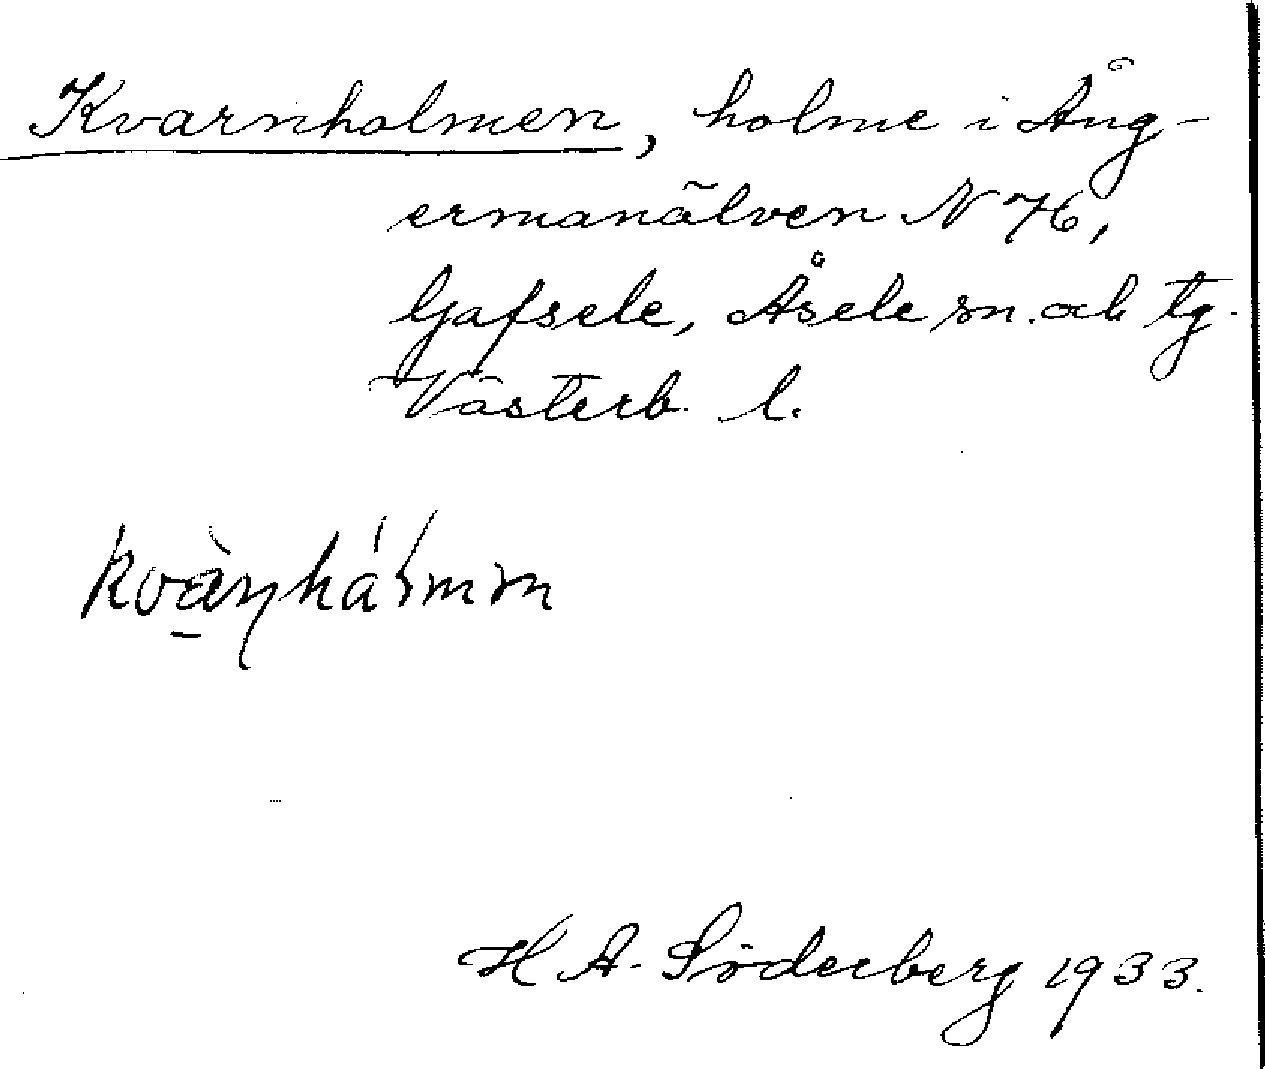 Kvarnholmen, holme i Ång-
ermanälven N 76,
Gafsele, Åsele sn. och tg.
Västerb. l.
H A. Söderberg 1933.